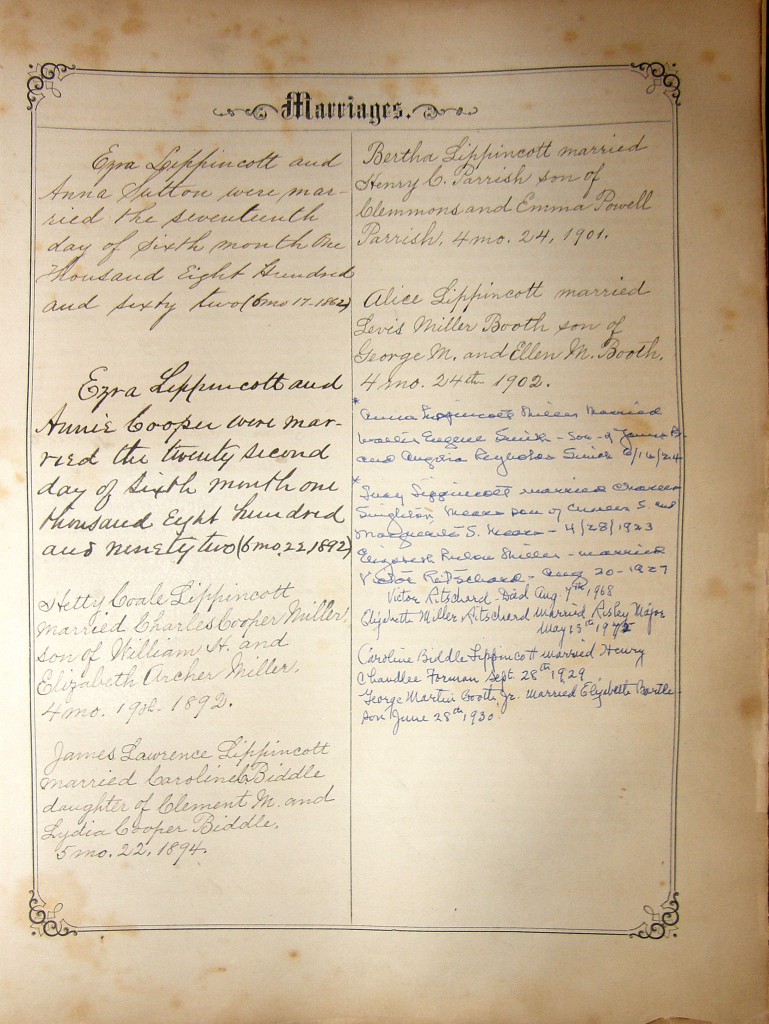 Marriages.
Ezra Lippincott and
Anna Sutton were mar-
ried the seventeenth
day of sixth month One
Thousand Eight Hundred
and sixty two (6 mo 17-1862)
Ezra Lippincott and
Annie Cooper were mar-
ried the twenty second
day of sixth month one
thousand Eight hundred
and ninety two (6 mo. 22 1892)
Hetty Coale Lippincott
married Charles Cooper Miller,
son of William H. and
Elizabeth Archer Miller.
4 mo. 1892.
James Lawrence Lippincott
married Caroline Biddle
daughter of Clement M. and
Lydia Cooper Biddle.
5 mo. 22, 1894.
Bertha Lippincott married
Henry C. Parrish son of
Clemmons and Emma Powell
Parrish, 4 mo. 24, 1901.
Alice Lippincott married
Levis Miller Booth son of
George M. and Ellen M. Booth.
4 mo. 24th 1902.
* Anna Lippincott Miller Married
Walter Eugene Smith - son of James
and Reynolds Smith /16/24
* Lucy Lippincott married Charles
Singleton Mears son of Charles S. and
Marguerite S. Mears - 4/28/1923
Elizabeth Miller - married
Victor Ritschard - Aug 20 - 1927
Victor Ritschard Died Aug. 7th 1968
Elizabeth Miller Ritschard Married Risley Major
May 13th
Caroline Biddle Lippincott married Henry
Chandlee Forman Sept. 28th, 1929
George Martin Booth, Jr. married Elizabeth Bartle-
son June 28th, 1930.